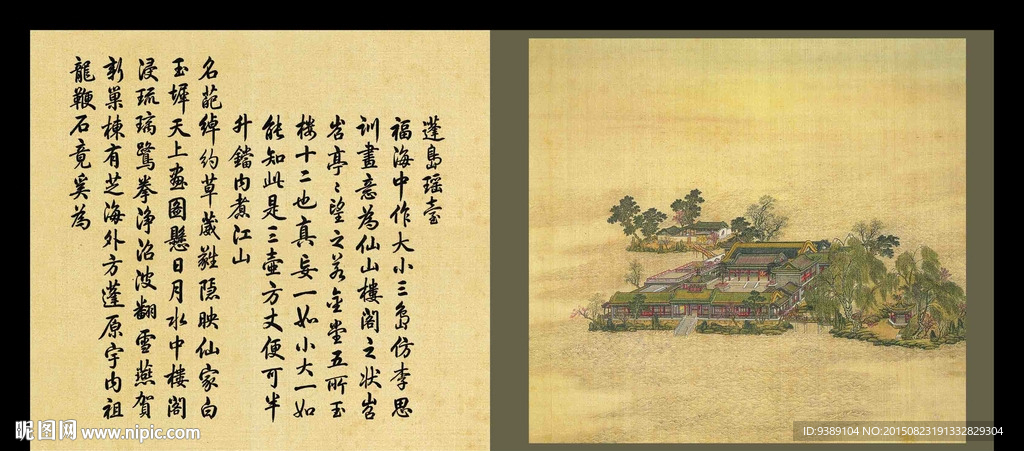 蓬島瑤臺
福海中作大小三島仿李思
訓畫意為仙山樓閣之狀岧
岧亭〻望之若金堂五所玉
樓十二也真妄一如小大一如
能知此是三壺方丈便可半
升鐺內煮江山
名葩綽約草葳蕤隱映仙家白
玉墀天上畫圖懸日月水中樓閣
浸琉璃鷺拳淨沼波翻雪燕賀
新巢棟有芝海外方蓬原宇內祖
龍鞭石竟奚為
昵图网 www.nipic.com
ID:9389104 NO:20150823191332829304